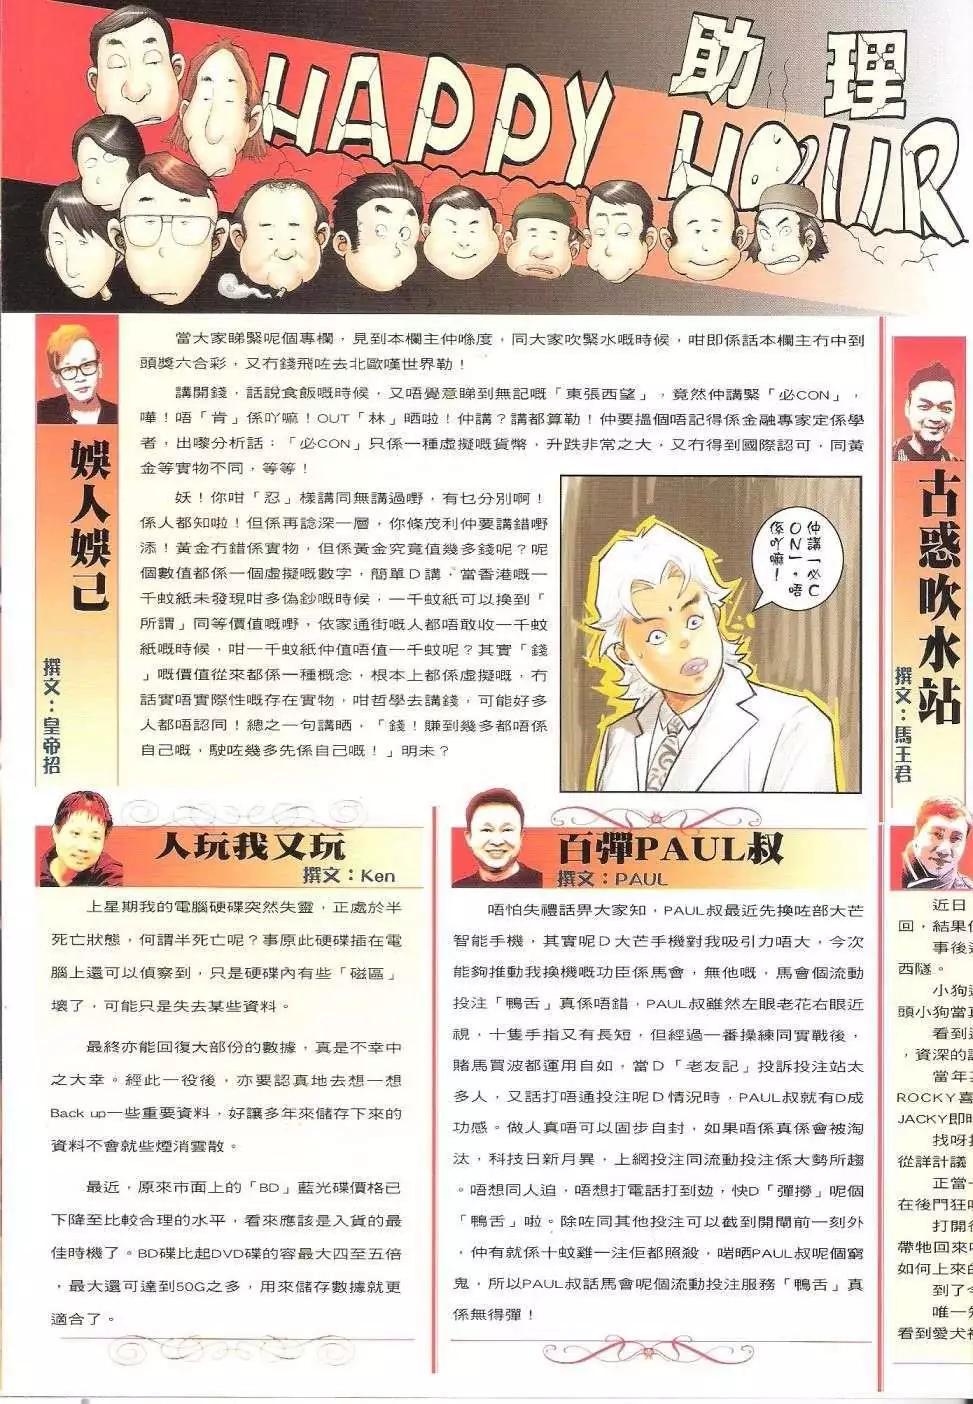 助理
HAPPY HOUR
娛人娛己
撰文：皇帝招
當大家睇緊呢個專欄，見到本欄主仲喺度，同大家吹緊水嘅時候，咁即係話本欄主冇中到
頭獎六合彩，又冇錢飛咗去北歐嘆世界勒！
講開錢，話說食飯嘅時候，又唔覺意睇到無記嘅「東張西望」，竟然仲講緊「必CON」，
嘩！唔「肯」係吖嘛！OUT「林」晒啦！仲講？講都算勒！仲要搵個唔記得係金融專家定係學
者，出嚟分析話：「必CON」只係一種虛擬嘅貨幣，升跌非常之大，又冇得到國際認可，同黃
金等實物不同，等等！
妖！你咁「忍」樣講同無講過嘢，有乜分別啊！
係人都知啦！但係再諗深一層，你條茂利仲要講錯嘢
添！黃金冇錯係實物，但係黃金究竟值幾多錢呢？呢
個數值都係一個虛擬嘅數字，簡單D講，當香港嘅一
千蚊紙未發現咁多偽鈔嘅時候，一千蚊紙可以換到「
所謂」同等價值嘅嘢，依家通街嘅人都唔敢收一千蚊
紙嘅時候，咁一千蚊紙仲值唔值一千蚊呢？其實「錢
」嘅價值從來都係一種概念，根本上都係虛擬嘅，冇
話實唔實際性嘅存在實物，咁哲學去講錢，可能好多
人都唔認同！總之一句講晒，「錢！賺到幾多都唔係
自己嘅，駛咗幾多先係自己嘅！」明未？
仲講「必C
ON」。唔
係吖嘛！
古惑吹水站
撰文：馬王君
人玩我又玩
撰文：Ken
上星期我的電腦硬碟突然失靈，正處於半
死亡狀態，何謂半死亡呢？事原此硬碟插在電
腦上還可以偵察到，只是硬碟內有些「磁區」
壞了，可能只是失去某些資料。
最終亦能回復大部份的數據，真是不幸中
之大幸。經此一役後，亦要認真地去想一想
Back up一些重要資料，好讓多年來儲存下來的
資料不會就些煙消雲散。
最近，原來市面上的「BD」藍光碟價格已
下降至比較合理的水平，看來應該是入貨的最
佳時機了。BD碟比起DVD碟的容最大四至五倍
，最大還可達到50G之多，用來儲存數據就更
適合了。
百彈PAUL叔
撰文：PAUL
唔怕失禮話畀大家知，PAUL叔最近先換咗部大芒
智能手機，其實呢D大芒手機對我吸引力唔大，今次
能夠推動我換機嘅功臣係馬會，無他嘅，馬會個流動
投注「鴨舌」真係唔錯，PAUL叔雖然左眼老花右眼近
視，十隻手指又有長短，但經過一番操練同實戰後，
賭馬買波都運用自如，當D「老友記」投訴投注站太
多人，又話打唔通投注呢D情況時，PAUL叔就有D成
功感。做人真唔可以固步自封，如果唔係真係會被淘
汰，科技日新月異，上網投注同流動投注係大勢所趨
。唔想同人迫，唔想打電話打到攰，快D「彈撈」呢個
「鴨舌」啦。除咗同其他投注可以截到開閘前一刻外
，仲有就係十蚊雞一注佢都照殺，啱晒PAUL叔呢個窮
鬼，所以PAUL叔話馬會呢個流動投注服務「鴨舌」真
係無得彈！
近日
回，結果
事後
西隧。
小狗
頭小狗當
看到
，資深的
當年
ROCKY喜
JACKY即
找呀
從詳計議
正當
在後門狂
打開
帶牠回來
如何上來
到了
唯一
看到愛犬